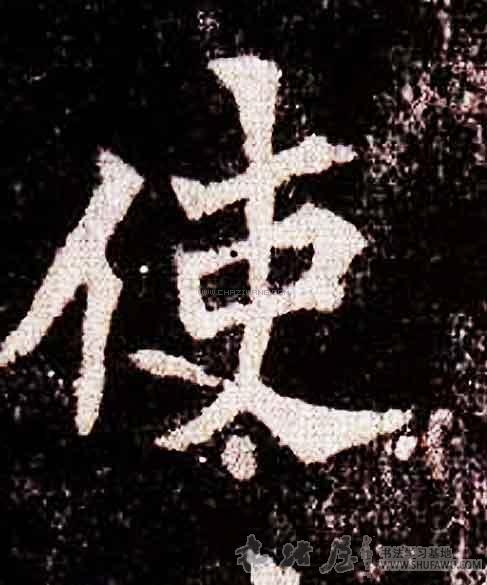 使
WWW.CHAZIWANG.COM
书法学习基地
WWW.SHUFAWU.COM